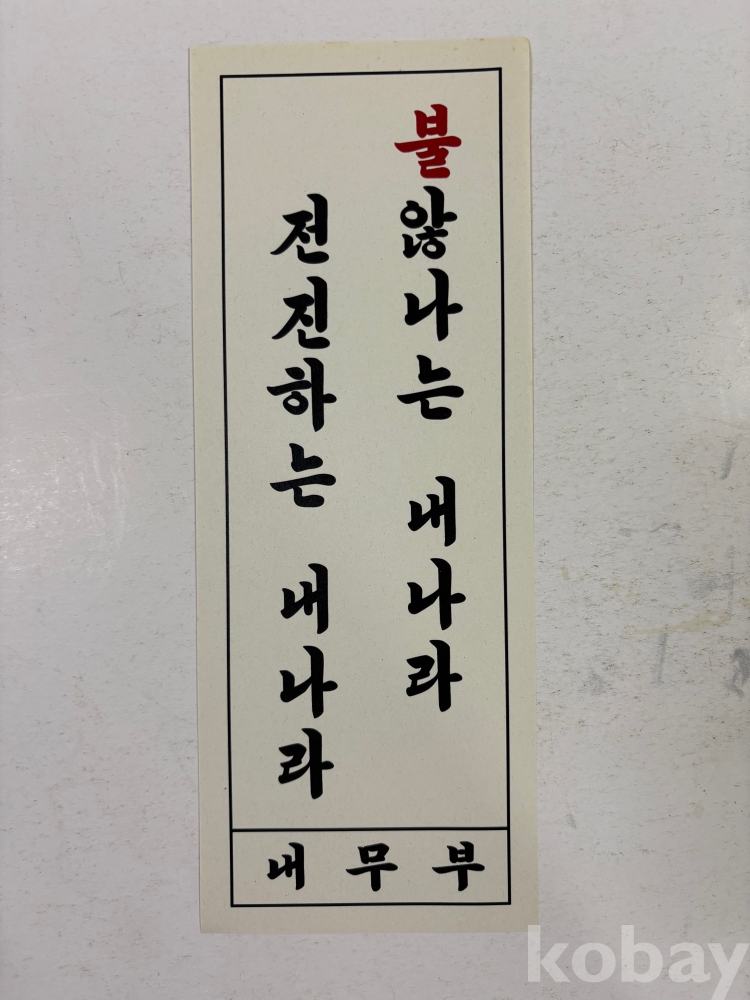 불않나는 내나라
전진하는 내나라
내무부
kobay